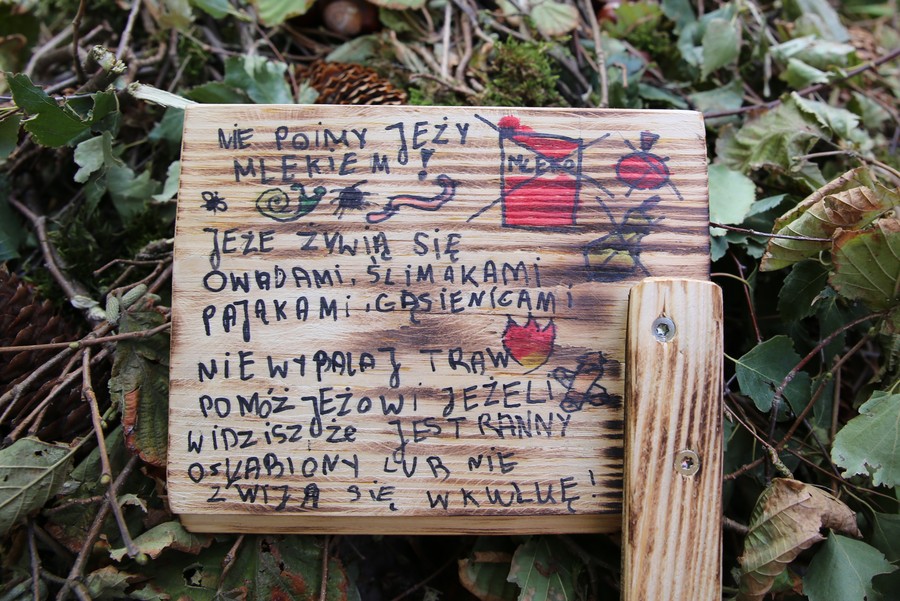 NIE POIMY JEŻY
MLEKIEM!
MLEKO
JEŻE ŻYWIĄ SIĘ
OWADAMI, ŚLIMAKAMI
PAJĄKAMI, GĄSIENICAMI
NIE WYPALAJ TRAW
POMÓŻ JEŻOWI JEŻELI
WIDZISZ, że JEST RANNY
OSŁABIONY LUB NIE
ZWIJA SIĘ W KULKĘ!